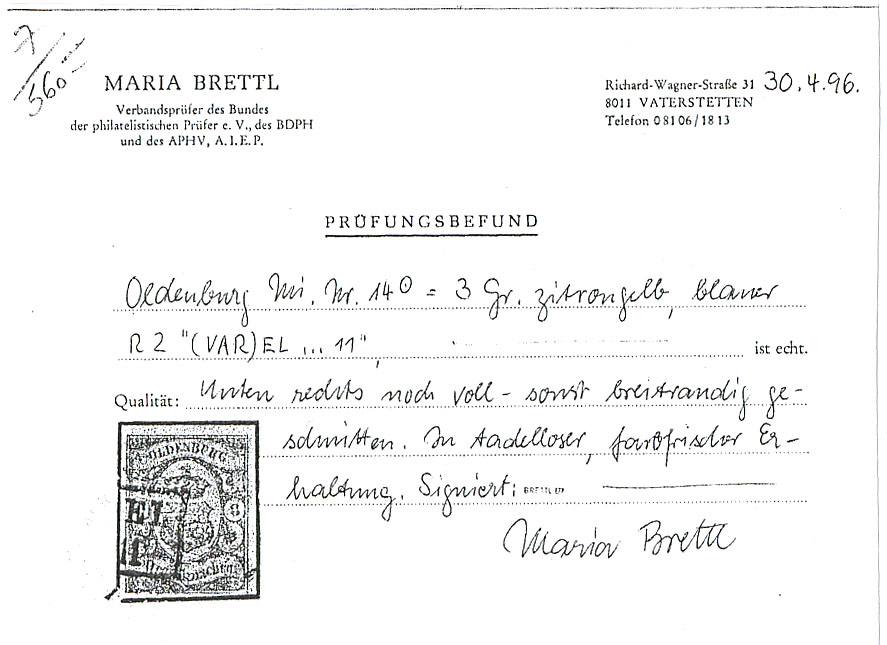 7/560.-
MARIA BRETTL
Verbandsprüfer des Bundes
der philatelistischen Prüfer e. V., des BDPH
und des APHV, A.I.E.P.
Richard-Wagner-Straße 31 30.4.96.
8011 VATERSTETTEN
Telefon 08106/1813
PRÜFUNGSBEFUND
Oldenburg Mi. Nr. 14 ⊙ = 3 Gr. zitrongelb, blauer
R2 "(VAR)EL ... 11", ist echt.
Qualität: Unten rechts noch voll - sonst breitrandig ge-
schnitten. In tadelloser, farbfrischer Er-
haltung. Signiert: BRETTL BPP
Maria Brettl
OLDENBURG
EL
11
3